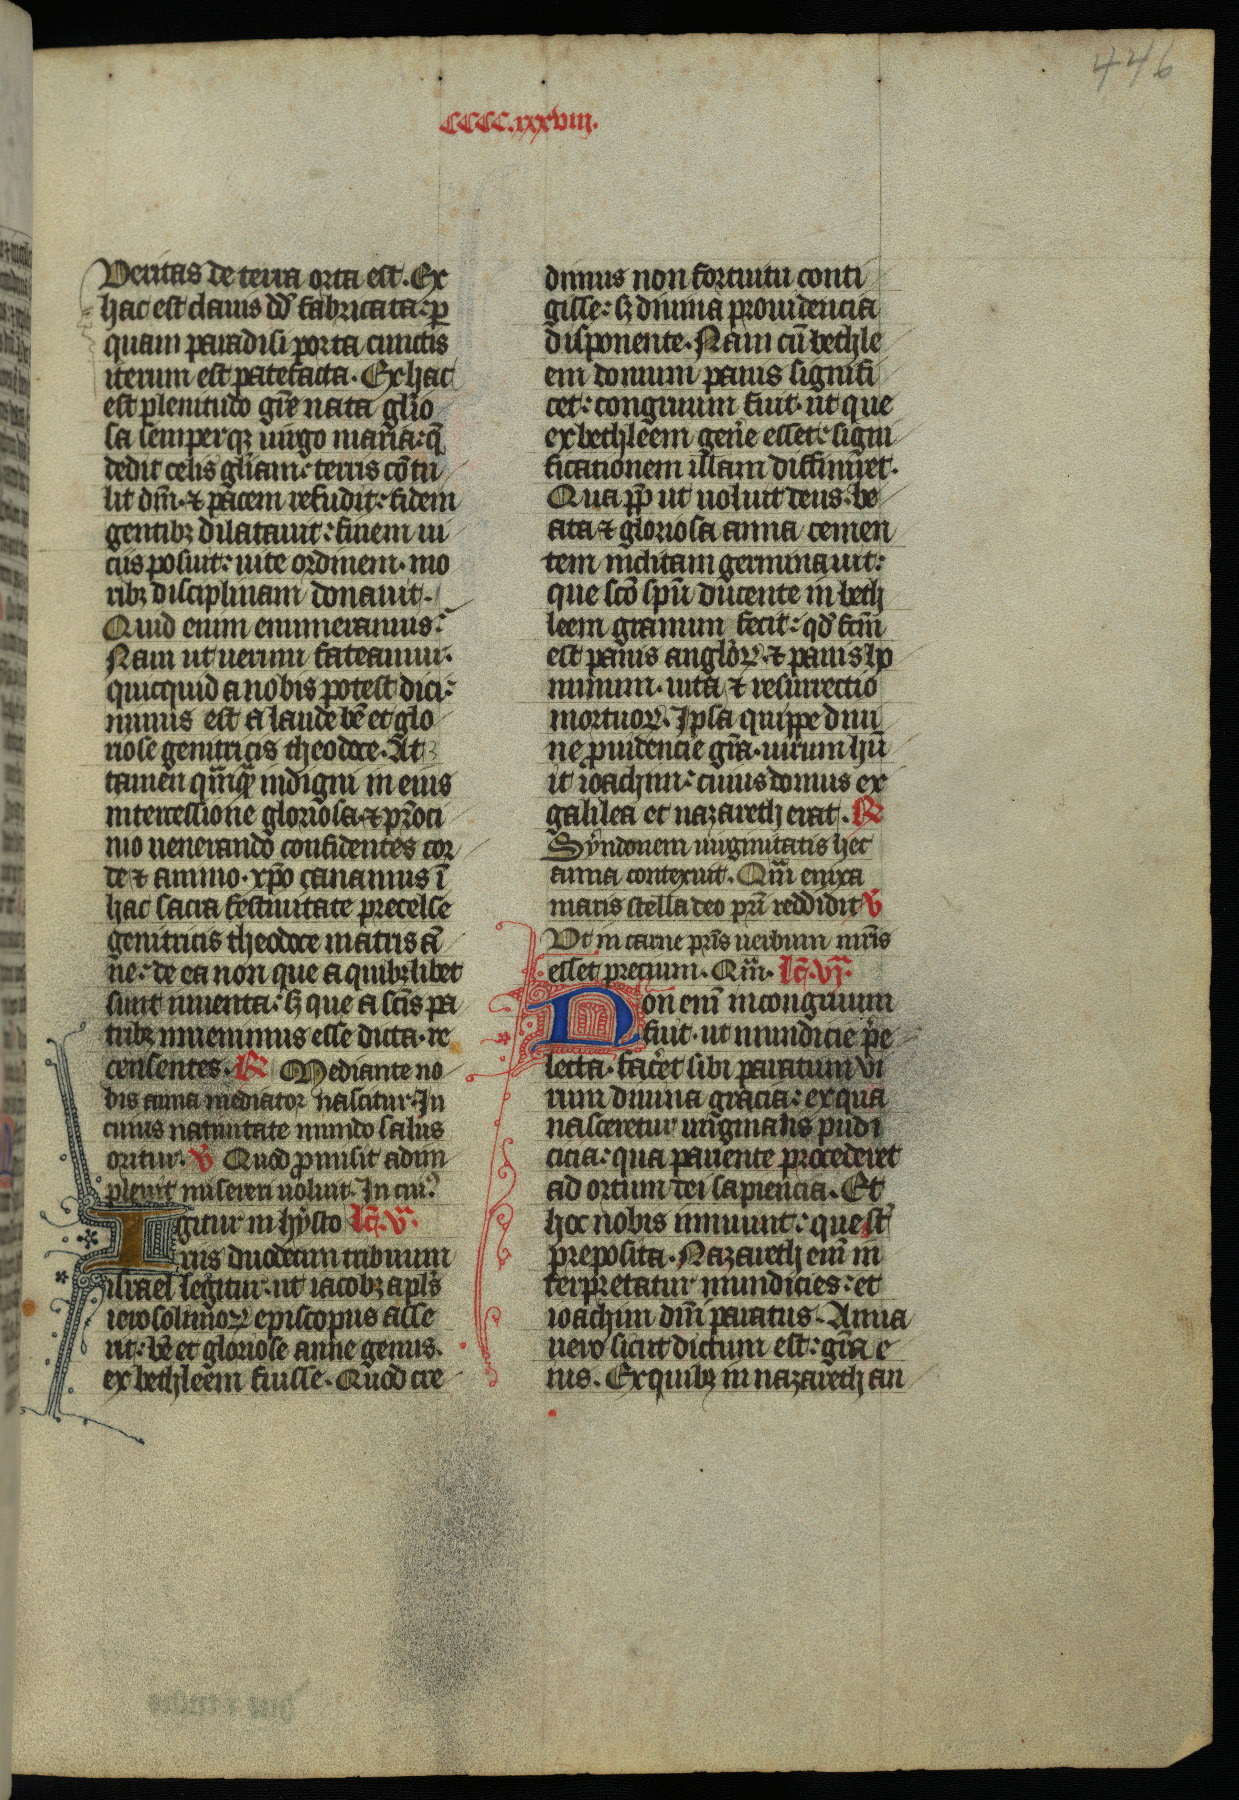 446
CCCC.xxxviii.
Veritas de terra orta est. Ex
hac est clauis dd̄ fabricata: ꝑ
quam paradisi porta cunctis
iterum est patefacta. Ex hac
est plenitudo gr̄e nata glīo
sa semperqꝫ uirgo maria: q̄
dedit celis gl̄iam: terris cōtu
lit dm̄. ⁊ pacem refudit: fidem
gentibꝫ dilatauit: finem ui
ciis posuit: uite ordinem. mo
ribꝫ disciplinam donauit.
Quid enim enumeramus:
Nam ut uerum fateamur.
quicquid a nobis potest dici:
minus est a laude bē et glo
riose genitricis theodoce. At
tamen qm̄qꝫ indigni in eius
intercessione gloriosa. ⁊ pr̄oci
nio uenerando confidentes cor
de ⁊ animo. xp̄o canamus ī
hac sacra festiuitate precelse
genitricis theodoce matris ān
ne: de ea non que a quibꝫlibet
sunt inuenta: sꝫ que a scīs pa
tribꝫ inuenimus esse dicta. re
censentes. R Mediante no
bis anna mediator nascitur. In
cuius natiuitate mundo salus
oritur. V Quod promisit adim
pleuit misereri uoluit. In cuiꝰ
Igitur in hysto lc̄. v.
riis duodecim tribuum
israel legitur. ut iacobꝫ apl̄s
ierosolimoꝝ episcopus asse
rit: bē et gloriose anne genus.
ex bethleem fuisse. Quod cre
dimus non fortuitu conti
gisse: sꝫ diuina prouidencia
disponente. Nam cū bethle
em domum panis signifi
cet: congruum fuit. ut que
ex bethleem gen̄e esset: signi
ficationem illam diffiniret.
Qua pp̄ ut uoluit deus. be
ata ⁊ gloriosa anna cemen
tem inclitam germinauit:
que scō spū ducente in beth
leem gramun fecit: qd̄ fcm̄
est panis angloꝝ. ⁊ panis ho
minum. uita ⁊ resurrectio
mortuoꝝ. Ipsa quippe diui
ne prouidencie gr̄a. uirum hu
it ioachim: cuius domus ex
galilea et nazareth erat. R
Syndonem uirginitatis hec
anna contexuit. Qm̄ enixa
maris stella deo pr̄i reddidit V
Ut in carne pr̄is uerbum nr̄is
esset precium. Qm̄. lc̄. vi.
Non enī incongruum
fuit. ut mundicie pre
lecta. facet sibi paratum ui
rum diuina gracia: ex qua
nasceretur uirginalis pudi
cicia: qua pauente procederet
ad ortum dei sapiencia. Et
hoc nobis innuunt: que sꝉ
preposita. Nazareth enī in
terpretatur mundicies: et
ioachim dn̄i paratus. Anna
uero sicut dictum est: gr̄a e
ius. Ex quibꝫ in nazareth an